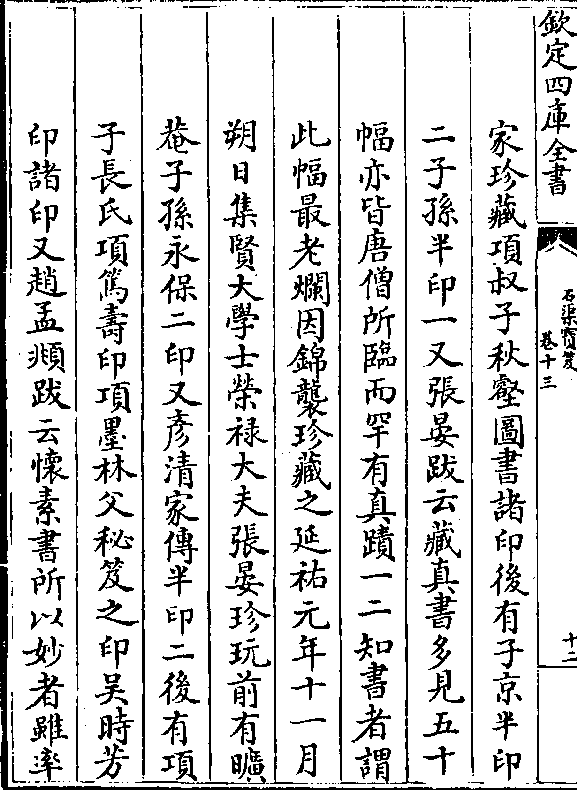 欽定四庫全書
石渠寶笈
卷十三
十二
家珍藏項叔子秋壑圖書諸印後有子京半印
二子孫半印一又張晏跋云藏真書多見五十
幅亦皆唐僧所臨而罕有真蹟一二知書者謂
此幅最老爛因錦襲珍藏之延祐元年十一月
朔日集賢大學士榮禄大夫張晏珍玩前有曠
菴子孫永保二印又彥清家傳半印二後有項
子長氏項篤壽印項墨林父秘笈之印吴時芳
印諸印又趙孟頫跋云懷素書所以妙者雖率